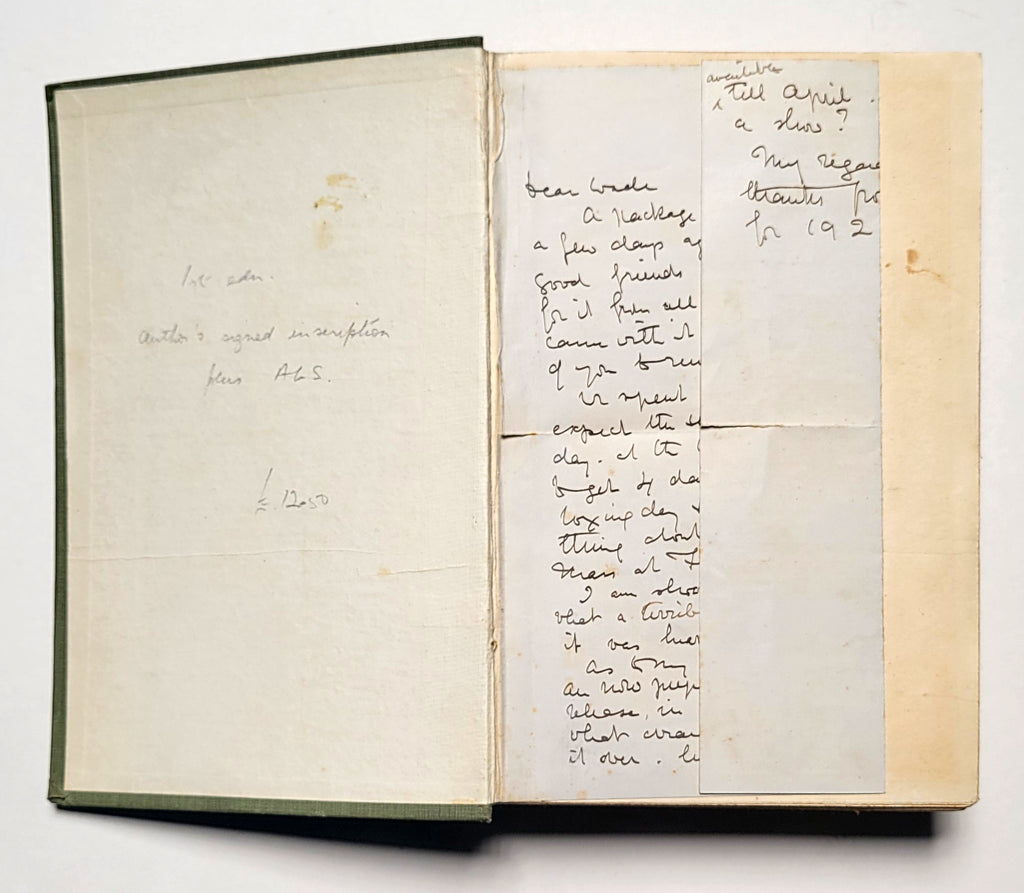 1st edn.
Author's signed inscription
plus ALS.
£ 12.50
Dear Wade
A package
a few days ag
good friends
for it from all
came with it
of you to rem
we spent
expect the
day. at the
to get 4 da
boxing day
thing about
Xmas at
I am
what a terrib
it was
as to my
an now prep
release, in
what
it over.
available
till April.
a show?
My regar
thanks for
for 192